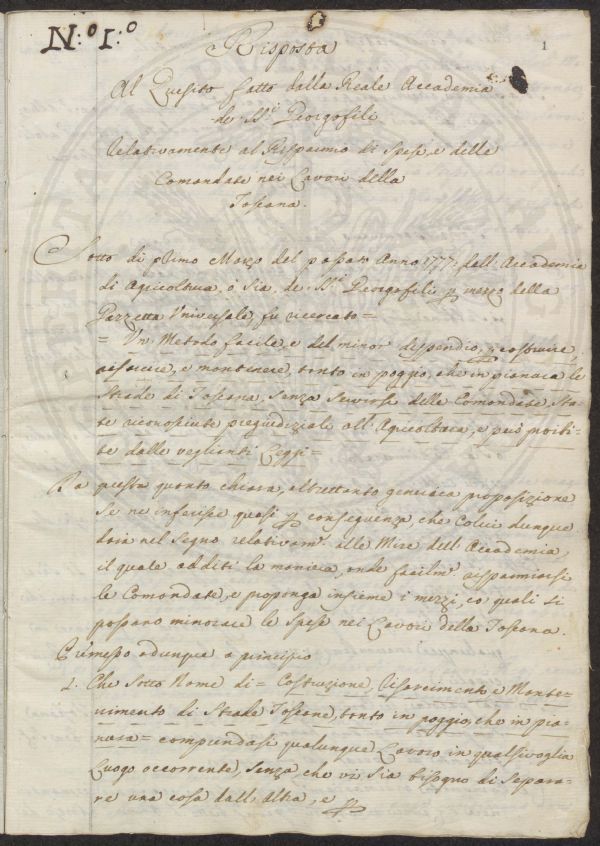 N:º 1:º
1
Risposta
Al Quesito fatto dalla Reale Accademia
de SS.ri Georgofili
Relativamente al Risparmio di Spese, e delle
Comandate nei Lavori della
Toscana.
Sotto dì primo Marzo del passato Anno 1777, dall'Accademia
di Agricoltura, o sia, de SS.ri Georgofili p mezzo della
Gazzetta Universale, fu ricercato=
= Un Metodo facile, e del minor dispendio, p costruire,
risarcire, e mantenere, tanto in poggio, che in pianara le
Strade di Toscana, senza servirsi delle Comandate, Sta-
te riconosciute pregiudiziali all'Agricoltura, e però proibi-
te dalle veglianti Leggi=
Da questa quanto chiara, altrettanto generica proposizione
Se ne inferisce quasi p conseguenza, che Colui dunque
darà nel Segno relativam.e alle Mire dell'Accademia,
il quale additi la maniera, onde facilm.e risparmiarsi
le Comandate, e proponga insieme i mezzi, co quali si
possano minorare le Spese nei Lavori della Toscana.
Premesso adunque a principio
1. Che sotto Nome di = Costruzione, Risarcimento, e Mante-
nimento di Strade Toscane, tanto in poggio, che in pia-
nara= comprendasi qualunque Lavoro in qualsivoglia
Luogo occorrente, senza che vi sia bisogno di separa-
re una cosa dall'altra, e p